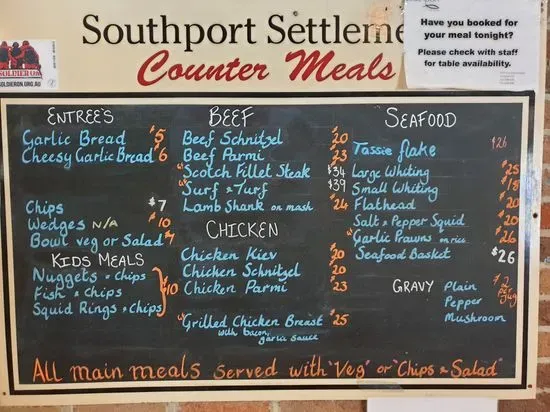 Southport Settleme
Counter Meals
SOLDIER ON
SOLDIERON.ORG.AU
Have you booked for
your meal tonight?
Please check with staff
for table availability.
ENTREE'S
Garlic Bread $5
Cheesy Garlic Bread $6
Chips $7
Wedges N/A $10
Bowl veg or Salad $7
KIDS MEALS
Nuggets & chips
Fish & chips
Squid Rings & Chips
$10
BEEF
Beef Schnitzel $20
Beef Parmi $23
"Scotch Fillet Steak $34
"Surf & Turf $39
Lamb Shank on mash $24
CHICKEN
Chicken Kiev $20
Chicken Schnitzel $20
Chicken Parmi $23
"Grilled Chicken Breast $25
with bacon,
garlic sauce
SEAFOOD
Tassie flake $26
Large Whiting $25
Small Whiting $18
Flathead $20
Salt & Pepper Squid $20
"Garlic Prawns on rice $26
Seafood Basket $26
GRAVY Plain $2
Pepper per
Mushroom Jug
All main meals served with "Veg" or "Chips & Salad"